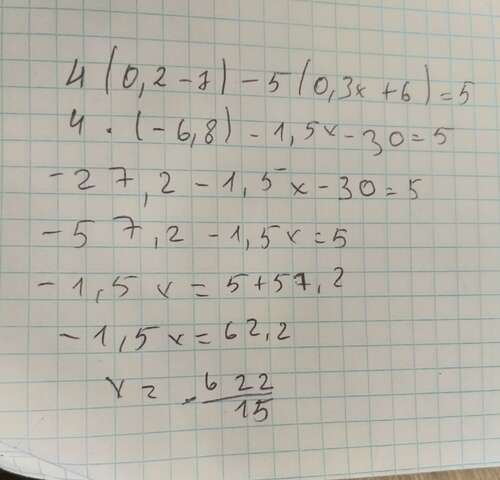 4(0,2-7)-5(0,3x+6)=5
4·(-6,8)-1,5x-30=5
-27,2-1,5x-30=5
-57,2-1,5x=5
-1,5x=5+57,2
-1,5x=62,2
x=-622/15